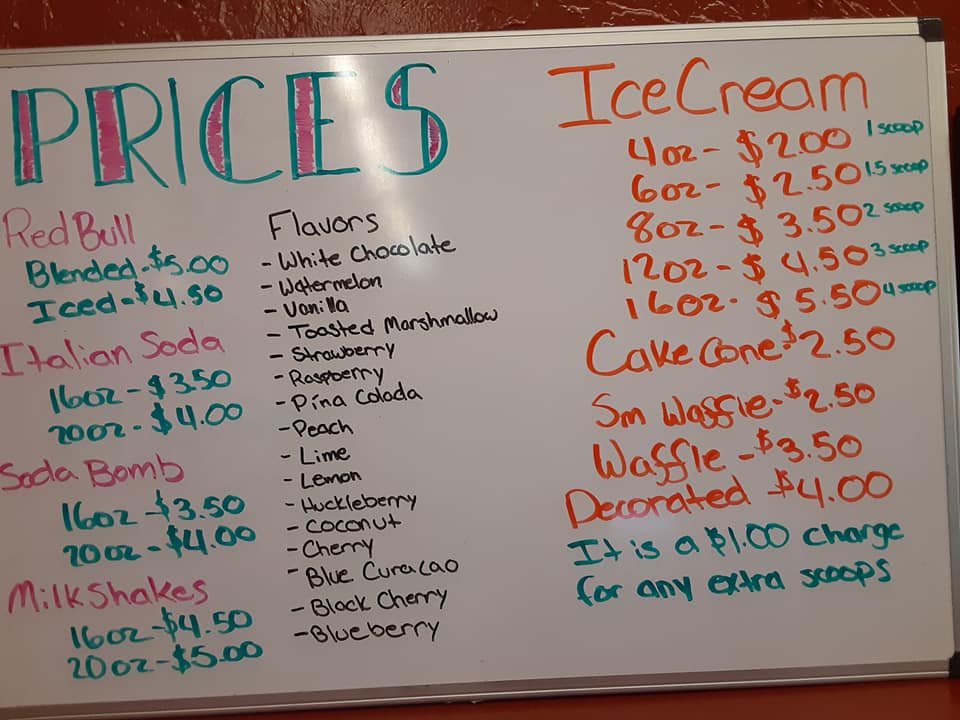 PRICES
Red Bull
Blended-$5.00
Iced-$4.50
Italian Soda
16oz-$3.50
20oz-$4.00
Soda Bomb
16oz-$3.50
20oz-$4.00
MilkShakes
16oz-$4.50
20oz-$5.00
Flavors
- White Chocolate
- Watermelon
- Vanilla
- Toasted Marshmallow
- Strawberry
- Raspberry
- Pína Colada
- Peach
- Lime
- Lemon
- Huckleberry
- Coconut
- Cherry
- Blue Curacao
- Black Cherry
- Blueberry
Ice Cream
4oz- $2.00 1 scoop
6oz- $2.50 1.5 scoop
8oz- $3.50 2 scoop
12oz- $4.50 3 scoop
16oz- $5.50 4 scoop
Cake Cone-$2.50
Sm Waffle-$2.50
Waffle-$3.50
Decorated-$4.00
It is a $1.00 charge
for any extra scoops